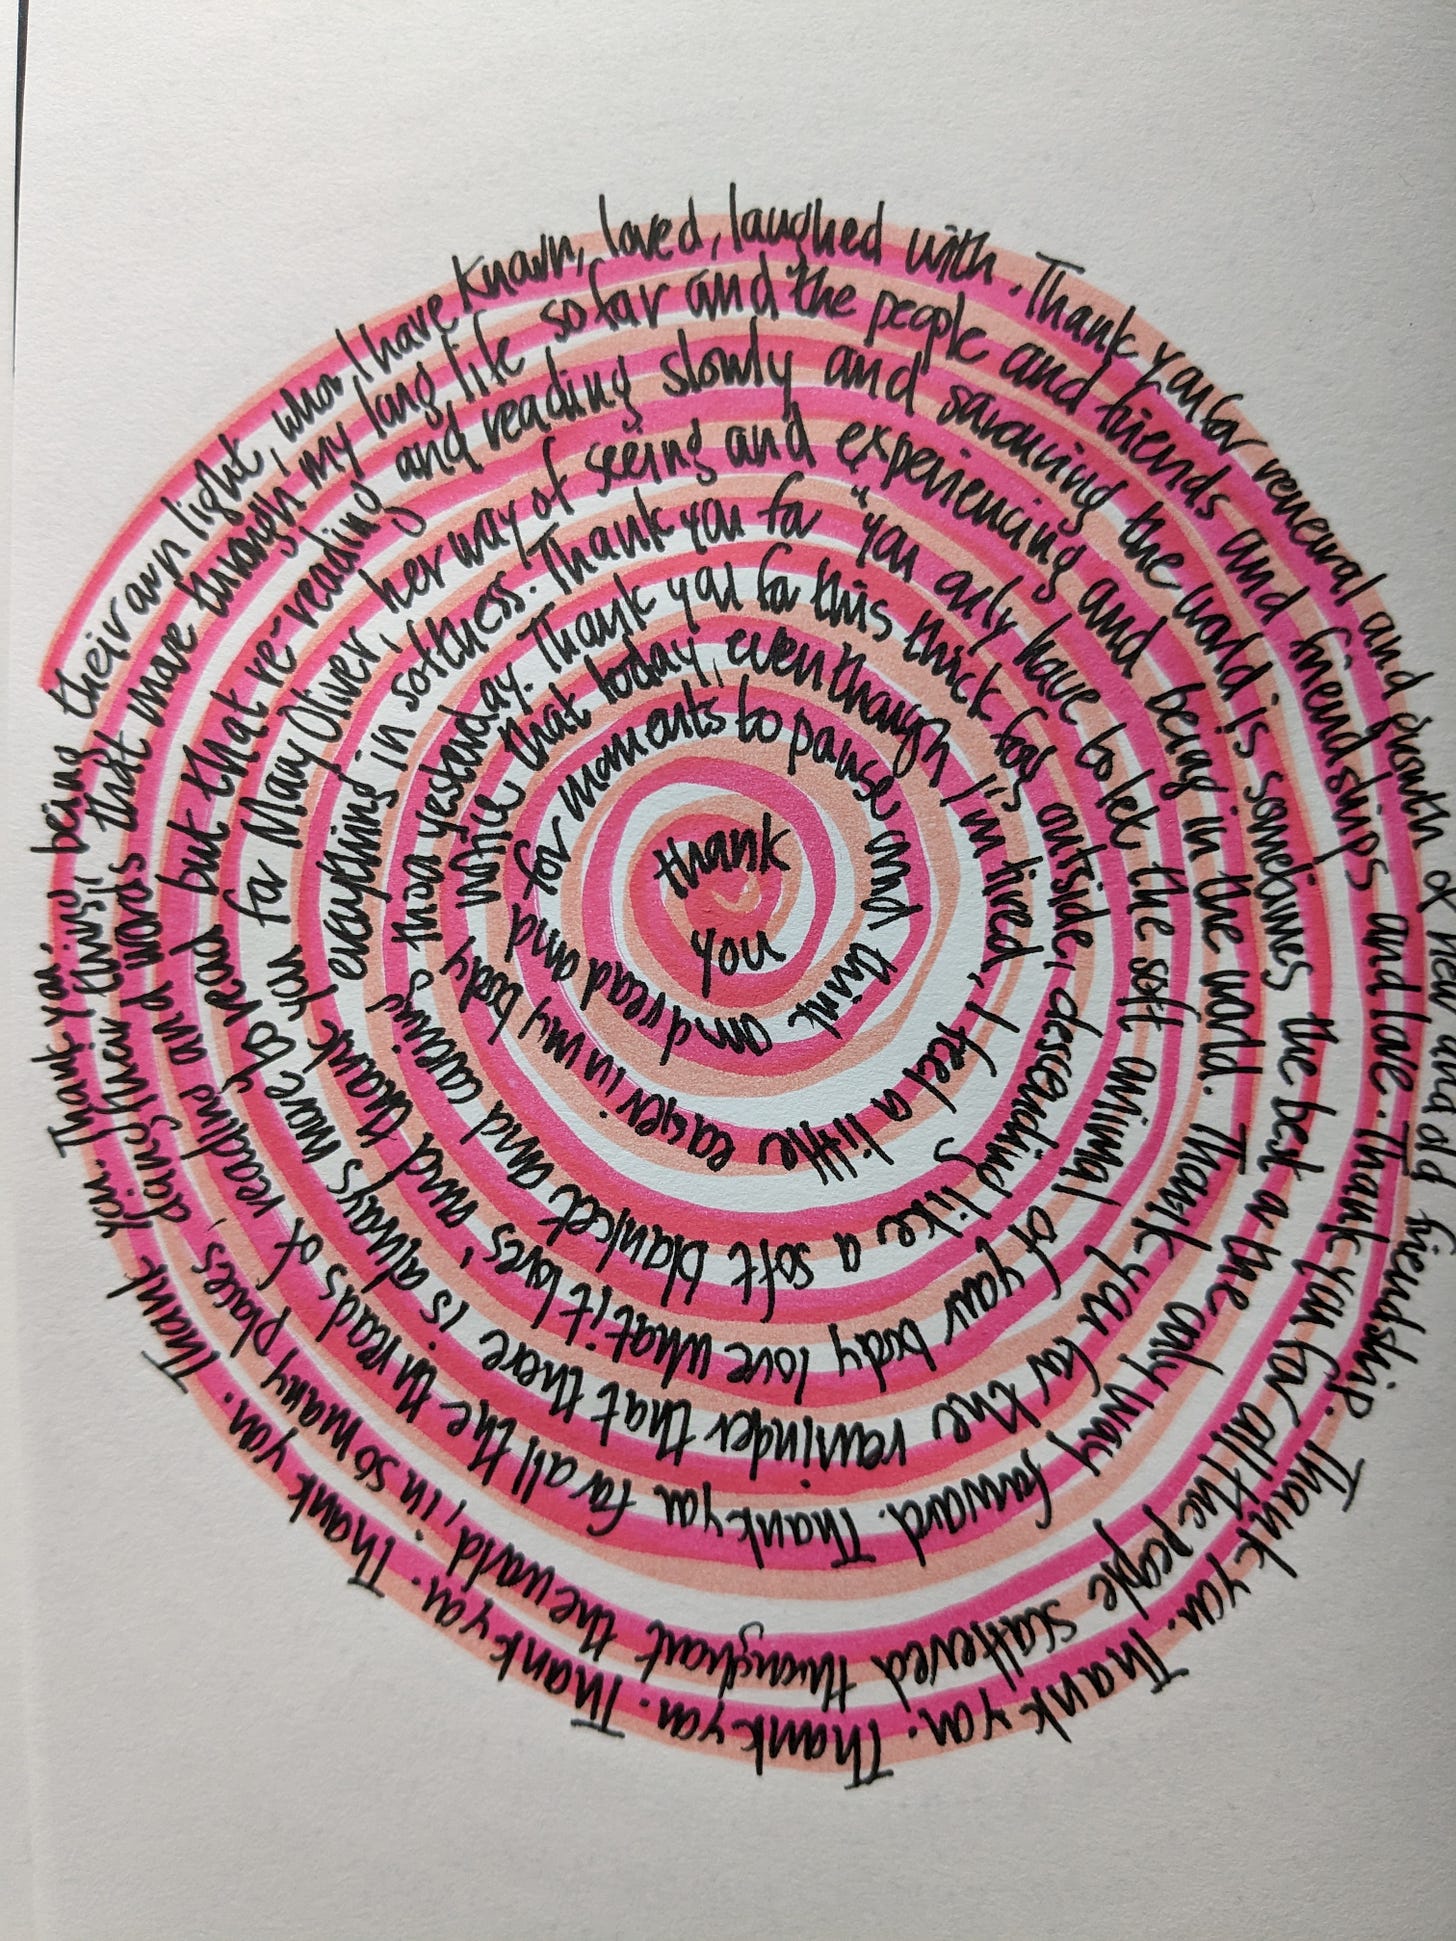 thank
you
for moments to pause and think and read and write that today, even though I'm tired, I feel a little easier in my body than yesterday. Thank you for this thick fog outside, descending like a soft blanket and covering everything in softness. Thank you for "you only have to let the soft animal of your body love what it loves" and thank you for Mary Oliver, her way of seeing and experiencing and being in the world. Thank you for the reminder that there is always more to read but that re-reading and reading slowly and savouring the world is sometimes the best or the only way forward. Thank you for all the threads of reading and words that move through my long life so far and the people and friends and friendships and love. Thank you for all the people scattered throughout the world, in so many places, doing their things, being their own light, whom I have known, loved, laughed with. Thank you for renewal and growth of new and old friendship. Thank you. Thank you. Thank you. Thank you. Thank you. Thank you. Thank you.